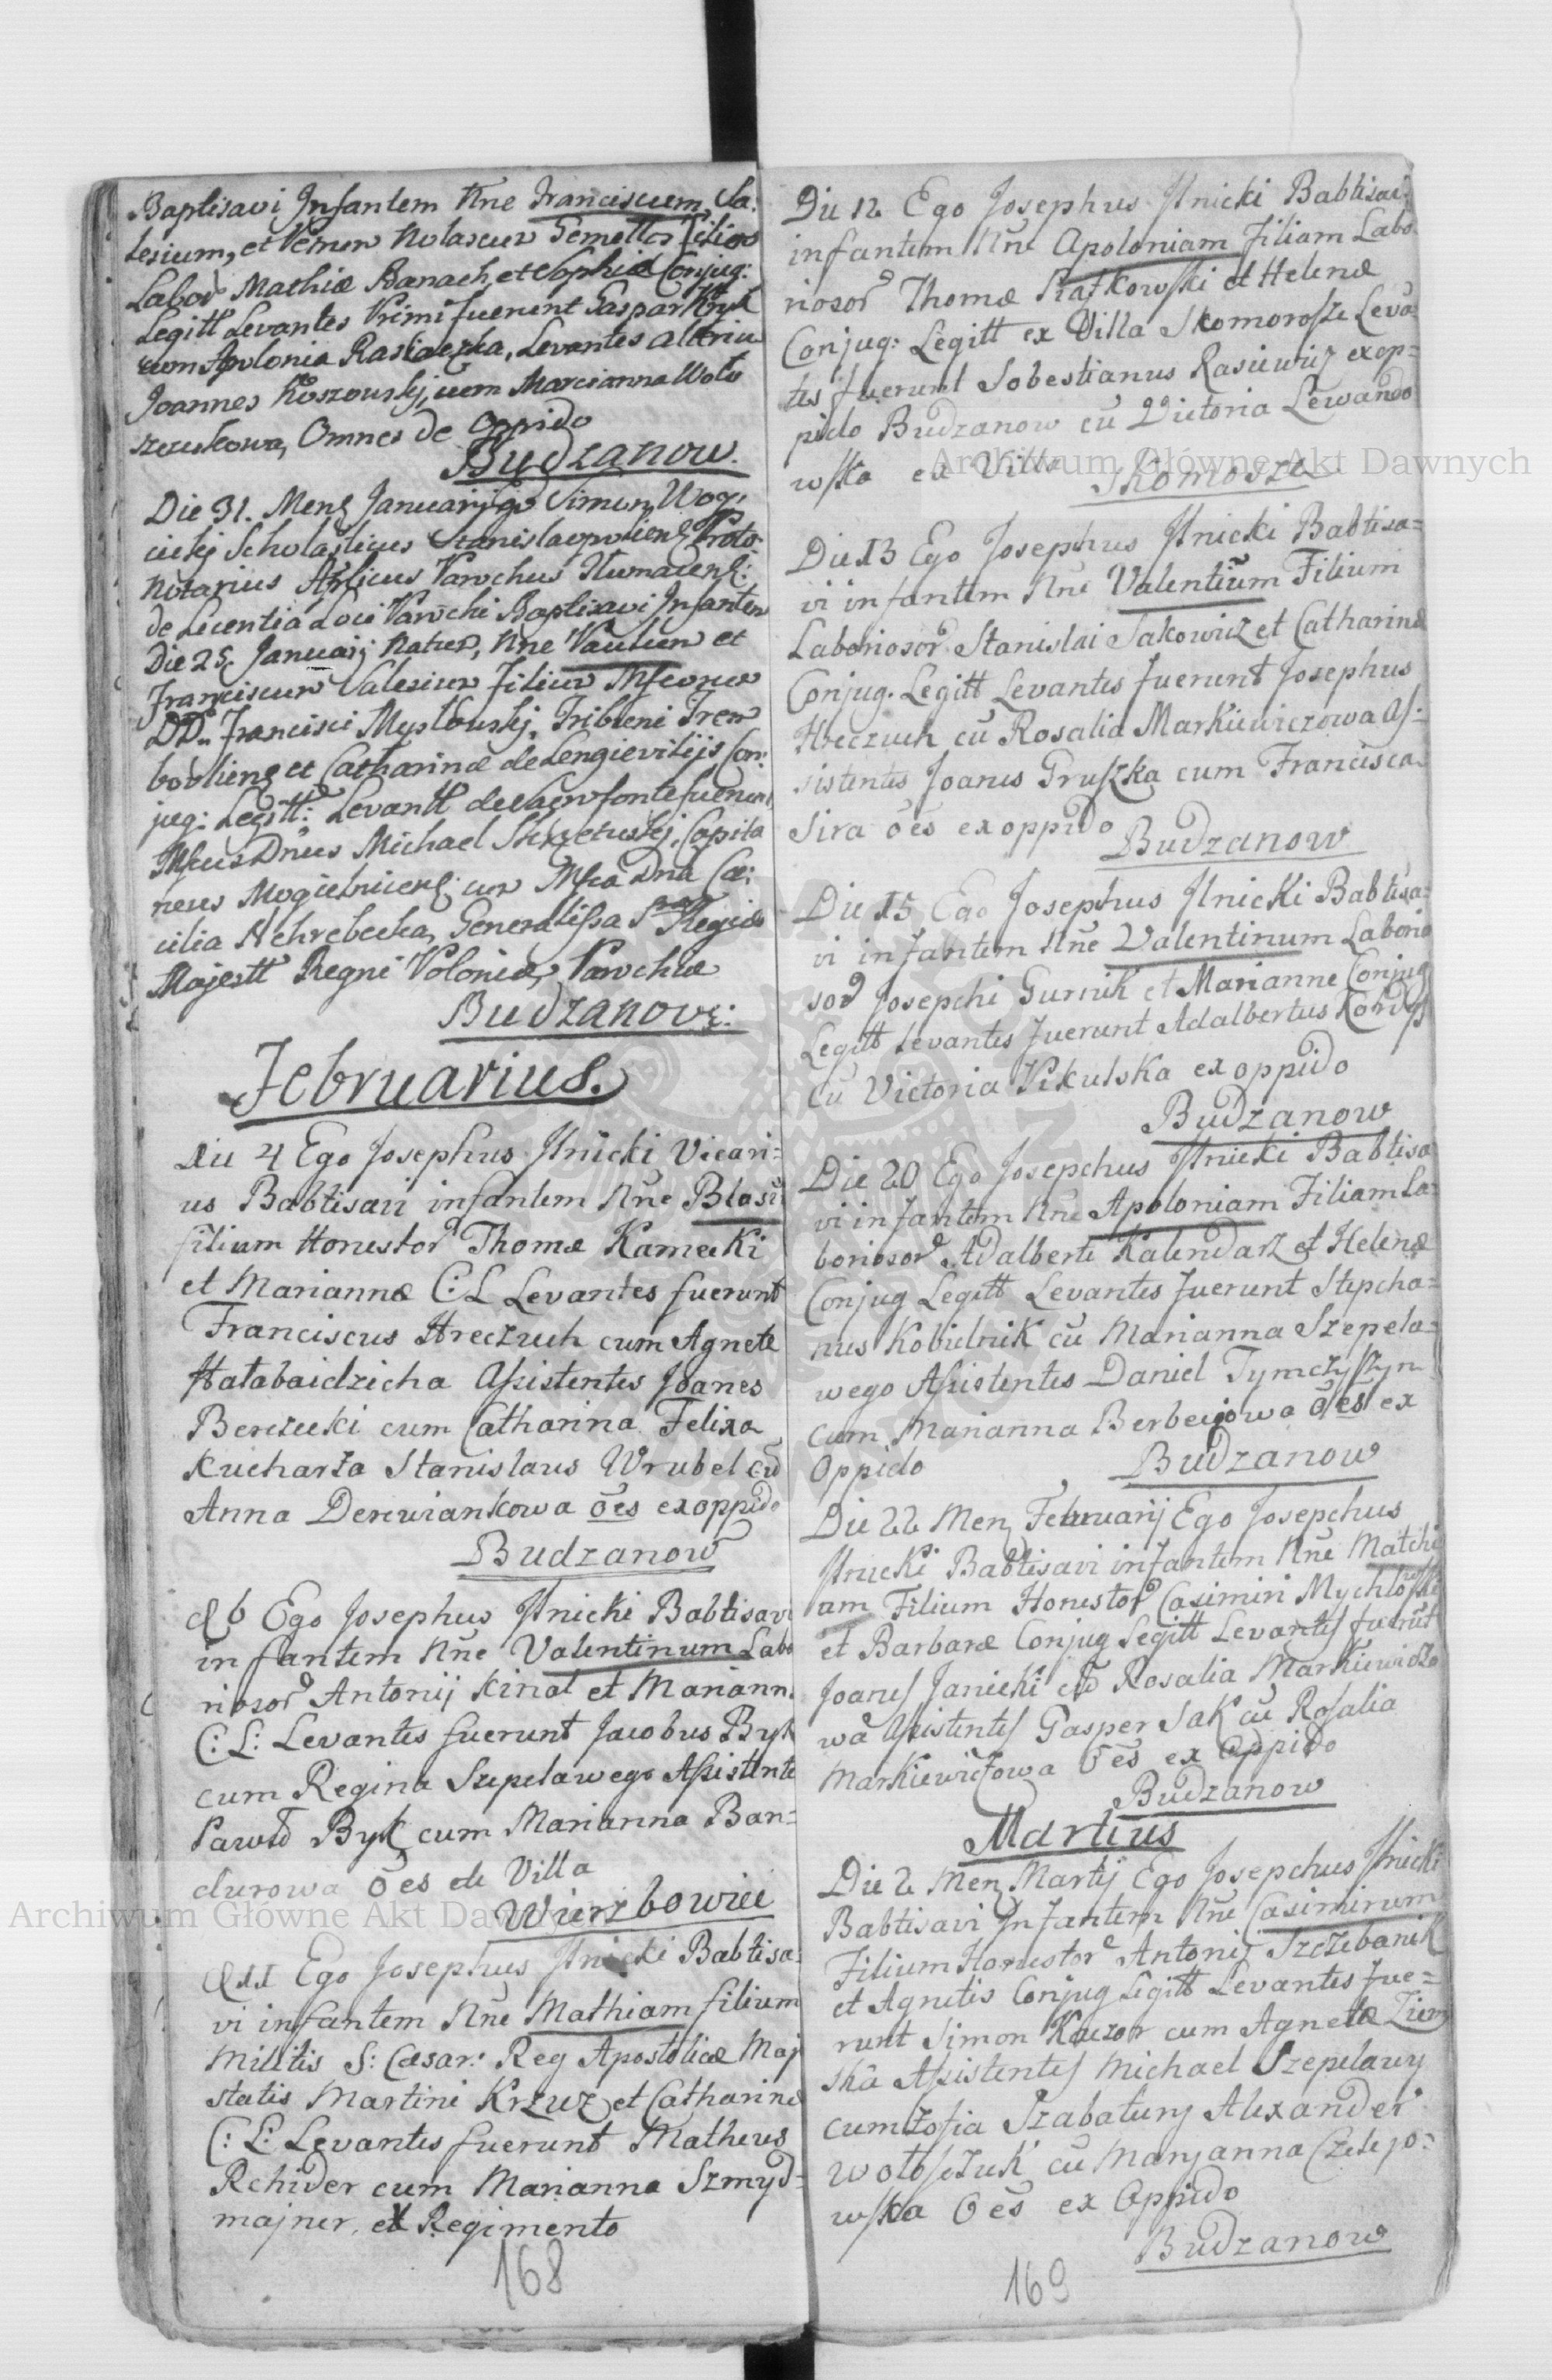 Baptisavi Infantem Nne Franciscum Sa:
lesium, et Petrum Nolascum Gemellos Filios
Labor Mathiæ Banach, et Sophiæ Conjug:
Legitt Levantes Primi fuerunt Gaspar Kryk
cum Apolonia Raskaczka, Levantes alteriu
Joannes Koszowskj, cum Marcianna Woło
szczukowa, Omnes de Oppido
Budzanow.
Die 31. Mens Januarij Ego Simon Woy,
cickj Scholasticus Stanislaopoliens Proto:
Notarius Aplicus Parochus Tłumacens:
de Licentia Loci Parochi Baptisavi Infantem
Die 25 Januarij Natum, Nne Paulum et
Franciscum Salesium Filium Mfcorum
DD. Francisci Mysłowskj, Tribuni Trem
bovliens et Catharinæ de Lengievitijs Con:
jug: Legitt: Levantt de Sacro fonte fuerunt
Mfcus Dnus Michael Skrzetuskj, Capita
neus Mogielnicens: cum Mfca Dna Cæ:
cilia Chrebecka, Generalissa S Regiæ
Majestt Regni Poloniæ, Parochiæ
Budzanovs:
Februarius.
Die 4 Ego Josephus Ilnicki Vicari=
us Babtisavi infantem Nne Blasiu
filium Honestor Thomæ Kamecki
et Mariannæ C: L Levantes fuerunt
Franciscus Hreczuch cum Agnete
Hałabaidzicha Assistentes Joanes
Berezecki cum Catharina Felixa
Kucharza Stanislaus Wrubel cu
Anna Derewiankowa oes ex oppido
Budzanow
d 6 Ego Josephus Ilnicki Babtisavi
infantem Nne Valentinum Labo
riosor Antonij Kinal et Mariann.
C: L: Levantes fuerunt Jacobus Byk
cum Regina Szepelawego Assistente
Pawło Byk cum Marianna Ban=
durowa oes de Villa
Wierzbowiec
d 11 Ego Josephus Ilnicki Babtisa:
vi infantem Nne Mathiam filium
Militis S: Cæsar: Reg Apostolicæ Maj
statis Martini Krzuz et Catharinæ
C: L: Levantes fuerunt Matheus
Rchider cum Marianna Szmyd=
majner, ex Regimento
168
Die 12 Ego Josephus Ilnicki Babtisavi
infantem Nne Apoloniam Filiam Labo
riosor Thomæ Piatkowski et Helenæ
Conjug: Legitt ex Villa Skomorosze Leva
tes fuerunt Sobestianus Rasiewicz ex op=
pido Budzanow cu Victoria Lewando
wska ex Villa Skomosze
Die 13 Ego Josephus Ilnicki Babtisa=
vi infantem Nne Valentium Filium
Laboriosor Stanislai Jakowicz et Catharinæ
Conjug. Legitt Levantes fuerunt Josephus
Hreczuch cu Rosalia Markiewiczowa As:
sistentes Joanes Gruszka cum Francisca
Sira oes ex oppido
Budzanow
Die 15 Ego Josephus Ilnicki Babtisa=
vi infantem Nne Valentinum Laborio
sor Josepchi Gurnik et Marianne Conjug
Legitt Levantes fuerunt Adalbertus Kordys
cu Victoria Pikulska ex oppido
Budzanow
Die 20 Ego Josepchus Ilnicki Babtisa
vi infantem Nne Apoloniam Filiam La=
boriosor Adalberti Kalendarz et Helenæ
Conjug Legitt Levantes fuerunt Stepcha=
nus Kobielnik cu Marianna Szepela=
wego Assistentes Daniel Tymczyszyn
cum Marianna Berbeciowa oes ex
Oppido
Budzanow
Die 22 Mens Februarij Ego Josepchus
Ilnicki Babtisavi infantem Nne Matchi
am Filium Honestor Casimiri Mychlowski
et Barbaræ Conjug Legitt Levantes fuerut
Joanes Janicki cu Rosalia Markiewiczo
wa Assistentes Gasper Sak cu Rosalia
Markiewiczowa oes ex Oppido
Budzanow
Martius
Die 2 Mens Martij Ego Josepchus Ilnicki
Babtisavi Infantem Nne Casimirum
Filium Honestor Antonij Szczebanik
et Agnetis Conjug Legitt Levantes fue=
runt Simon Kaczor cum Agneta Ziem
ska Assistentes Michael Szepelawy
cum Zofia Szabatury Alexander
Wołoszczuk cu Maryanna Czelejo=
wska Oes ex Oppido
Budzanow
169
Archiwum Główne Akt Dawnych
Archiwum Główne Akt Dawnych